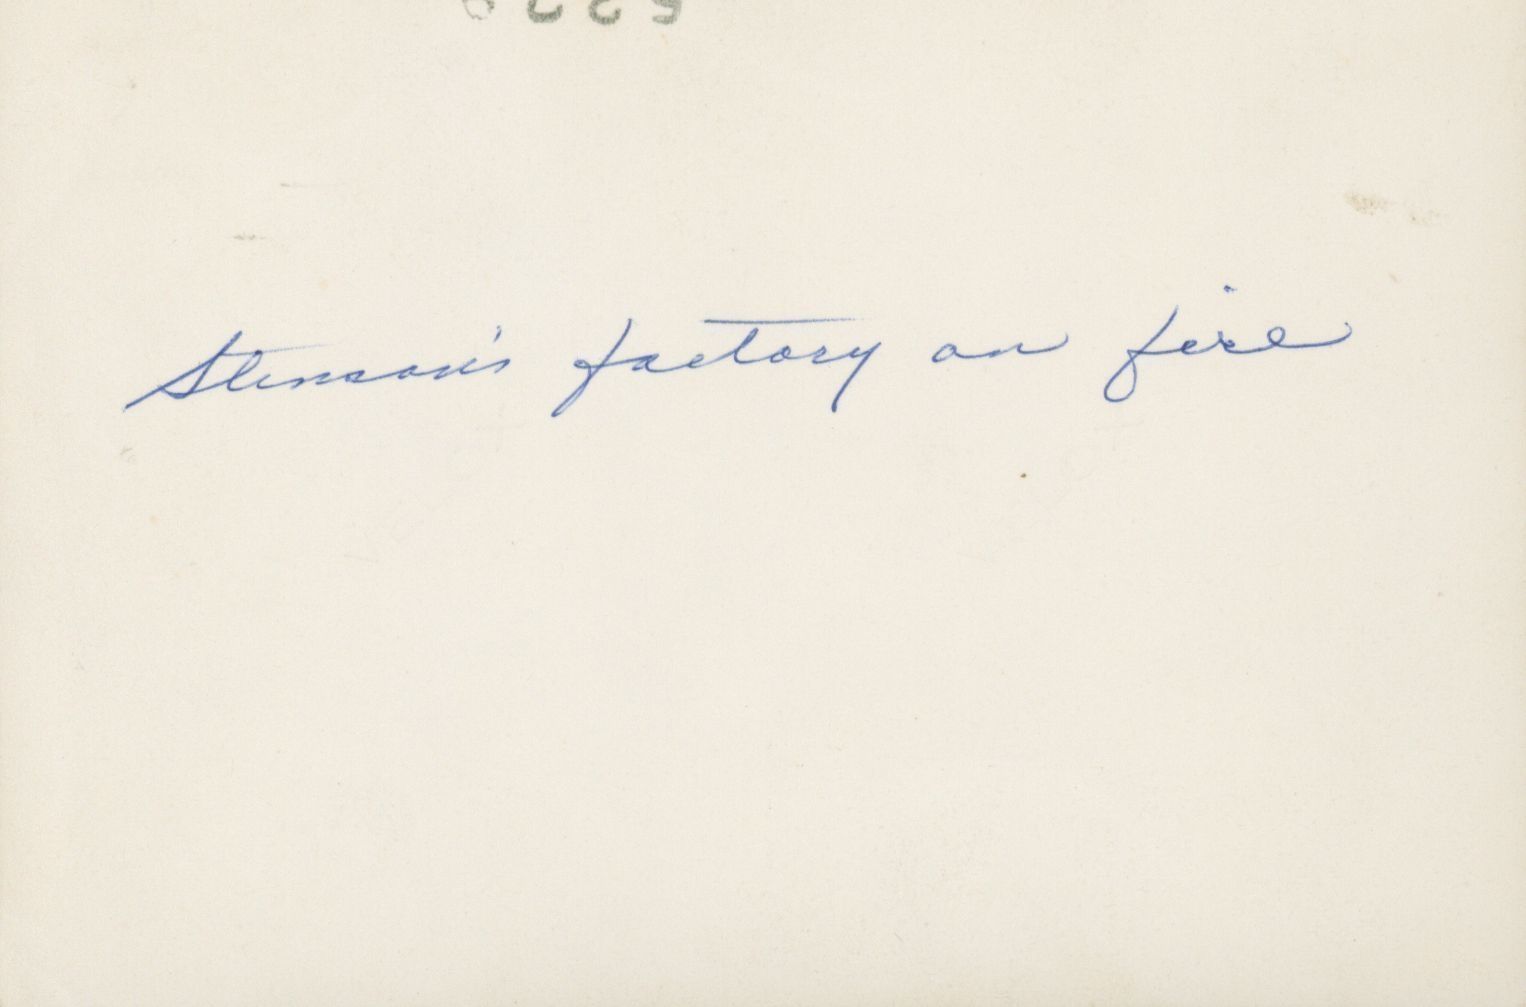 Stenson's factory on fire